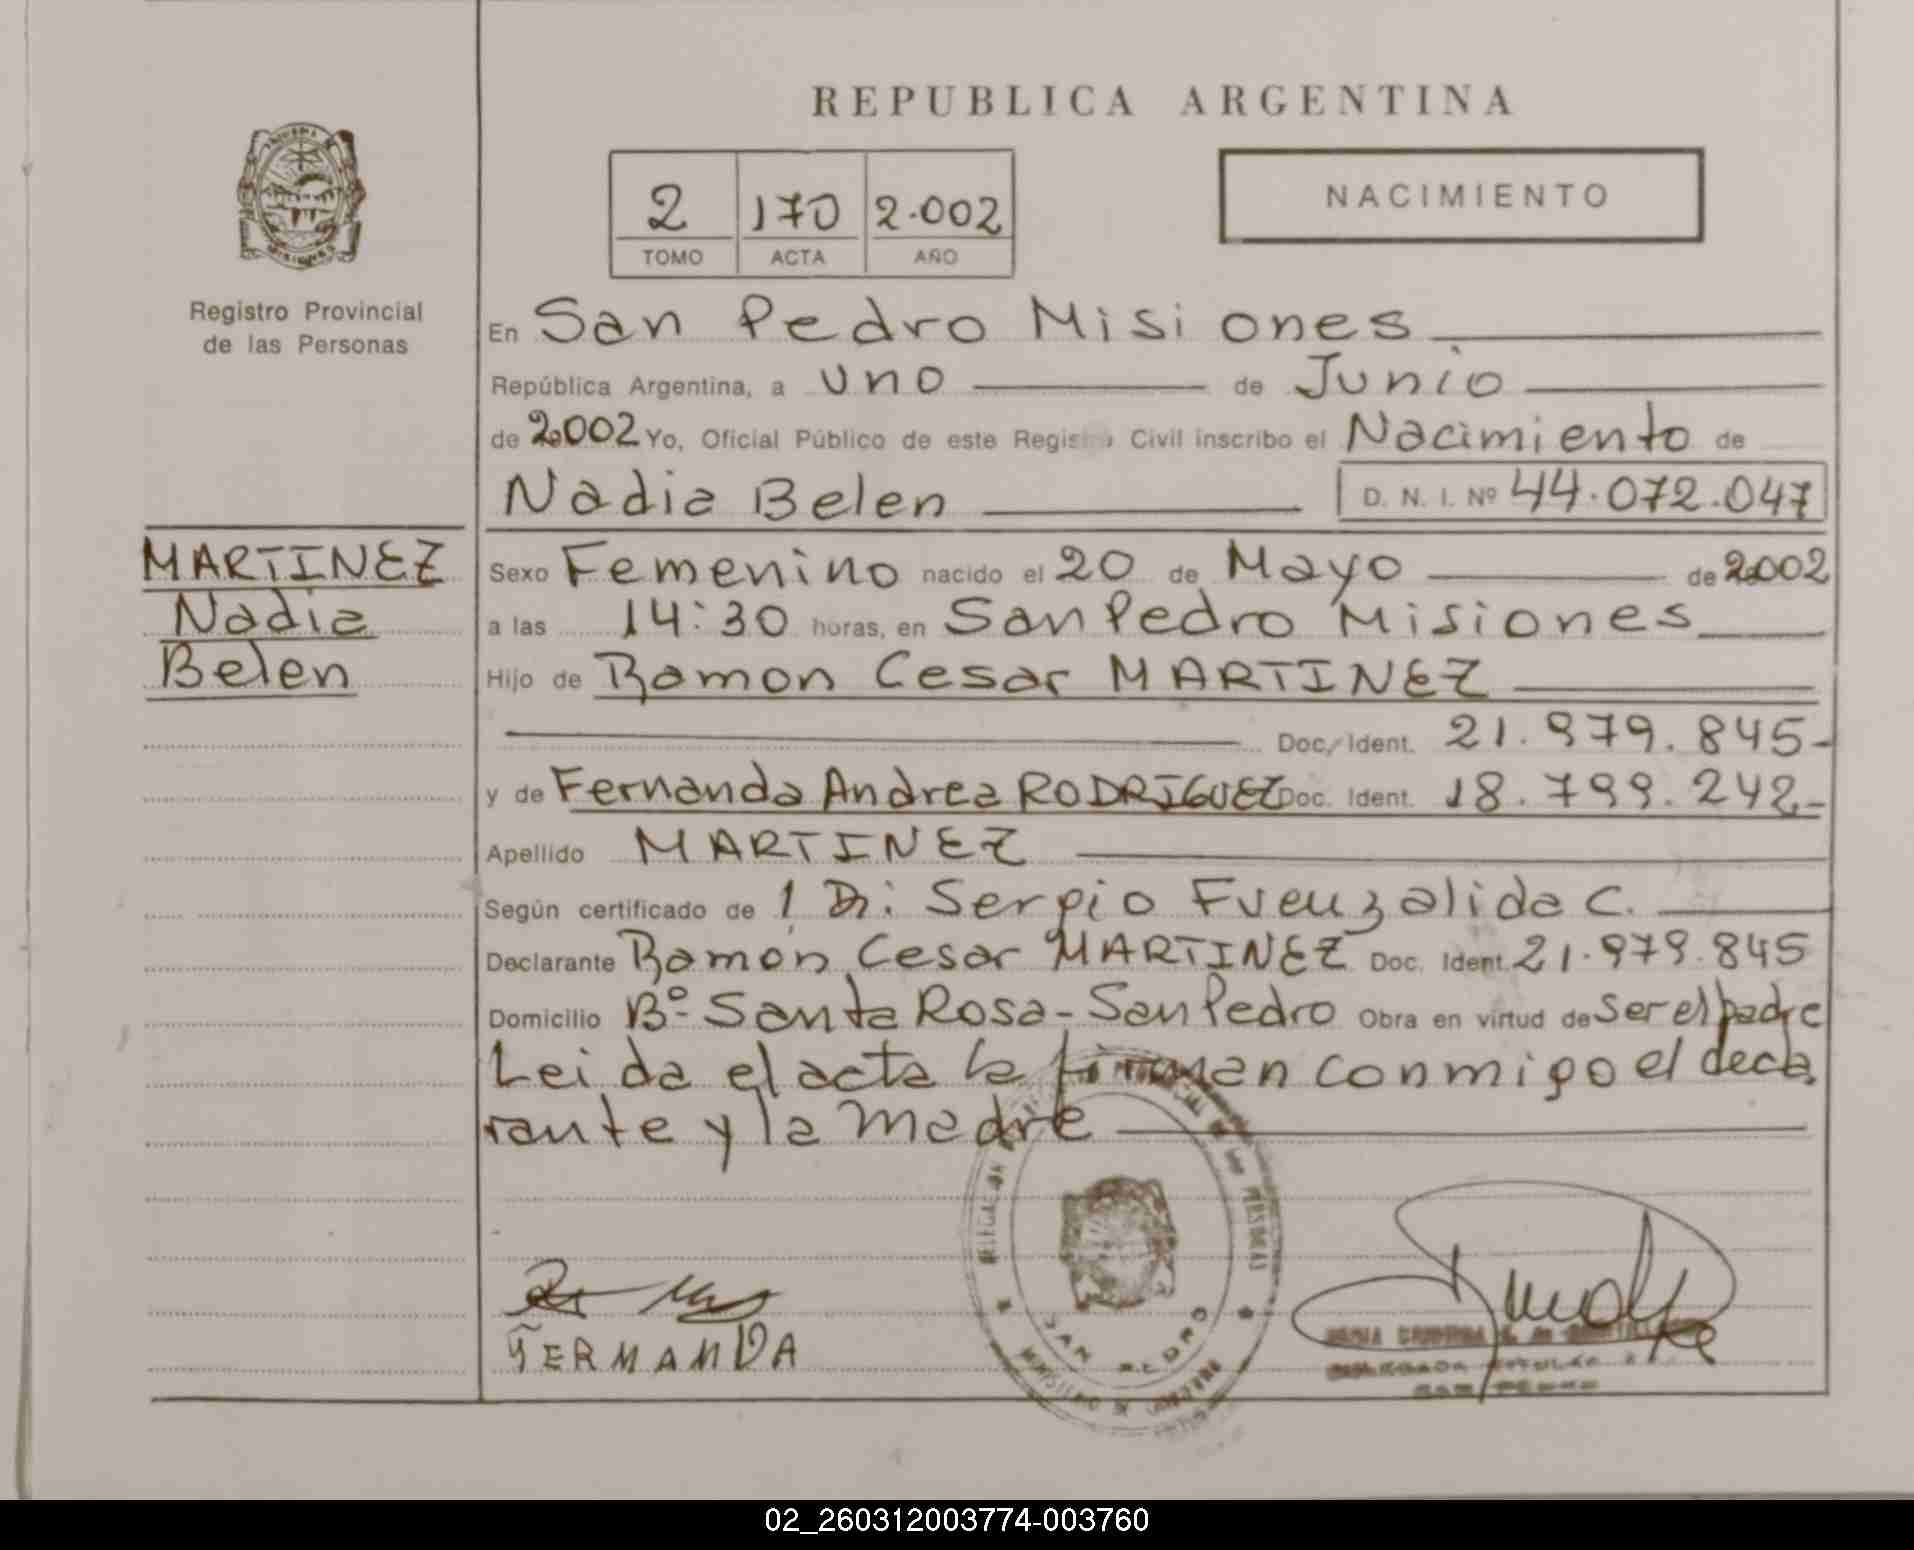 REPUBLICA ARGENTINA
2 170 2.002
TOMO ACTA AÑO
NACIMIENTO
Registro Provincial
de las Personas
MARTINEZ
Nadia
Belen
En San Pedro Misiones
República Argentina, a uno de Junio
de 2002 Yo, Oficial Público de este Registro Civil inscribo el Nacimiento de
Nadia Belen D. N. I. Nº 44.072.047
Sexo Femenino nacido el 20 de Mayo de 2002
a las 14:30 horas, en San Pedro Misiones
Hijo de Ramon Cesar MARTINEZ
Doc. Ident. 21.979.845-
y de Fernanda Andrea RODRIGUEZ Doc. Ident. 18.799.242-
Apellido MARTINEZ
Según certificado de Dr: Sergio Fuenzalida C.
Declarante Ramon Cesar MARTINEZ Doc. Ident. 21.979.845
Domicilio Bº Santa Rosa - San Pedro Obra en virtud de Ser el padre
Leida el acta la firman conmigo el decla
rante y la madre
FERNANDA
SAN PEDRO
02_260312003774-003760